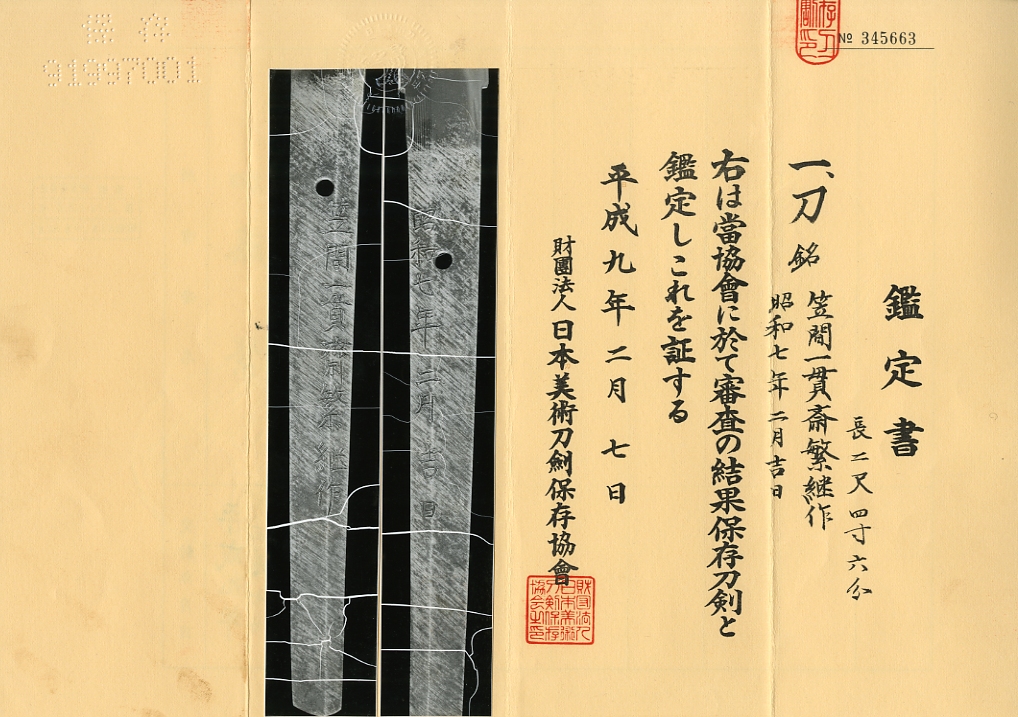 № 345663
鑑定書
一、刀 銘 笠間一貫斎繁継作
昭和七年二月吉日
長二尺四寸六分
右は當協會に於て審査の結果保存刀剣と
鑑定しこれを証する
平成九年二月七日
財團法人 日本美術刀剣保存協會
財団法人
日本美術
刀剣保存
協会之印
昭和七年二月吉日
笠間一貫斎繁継作
保存
91997001